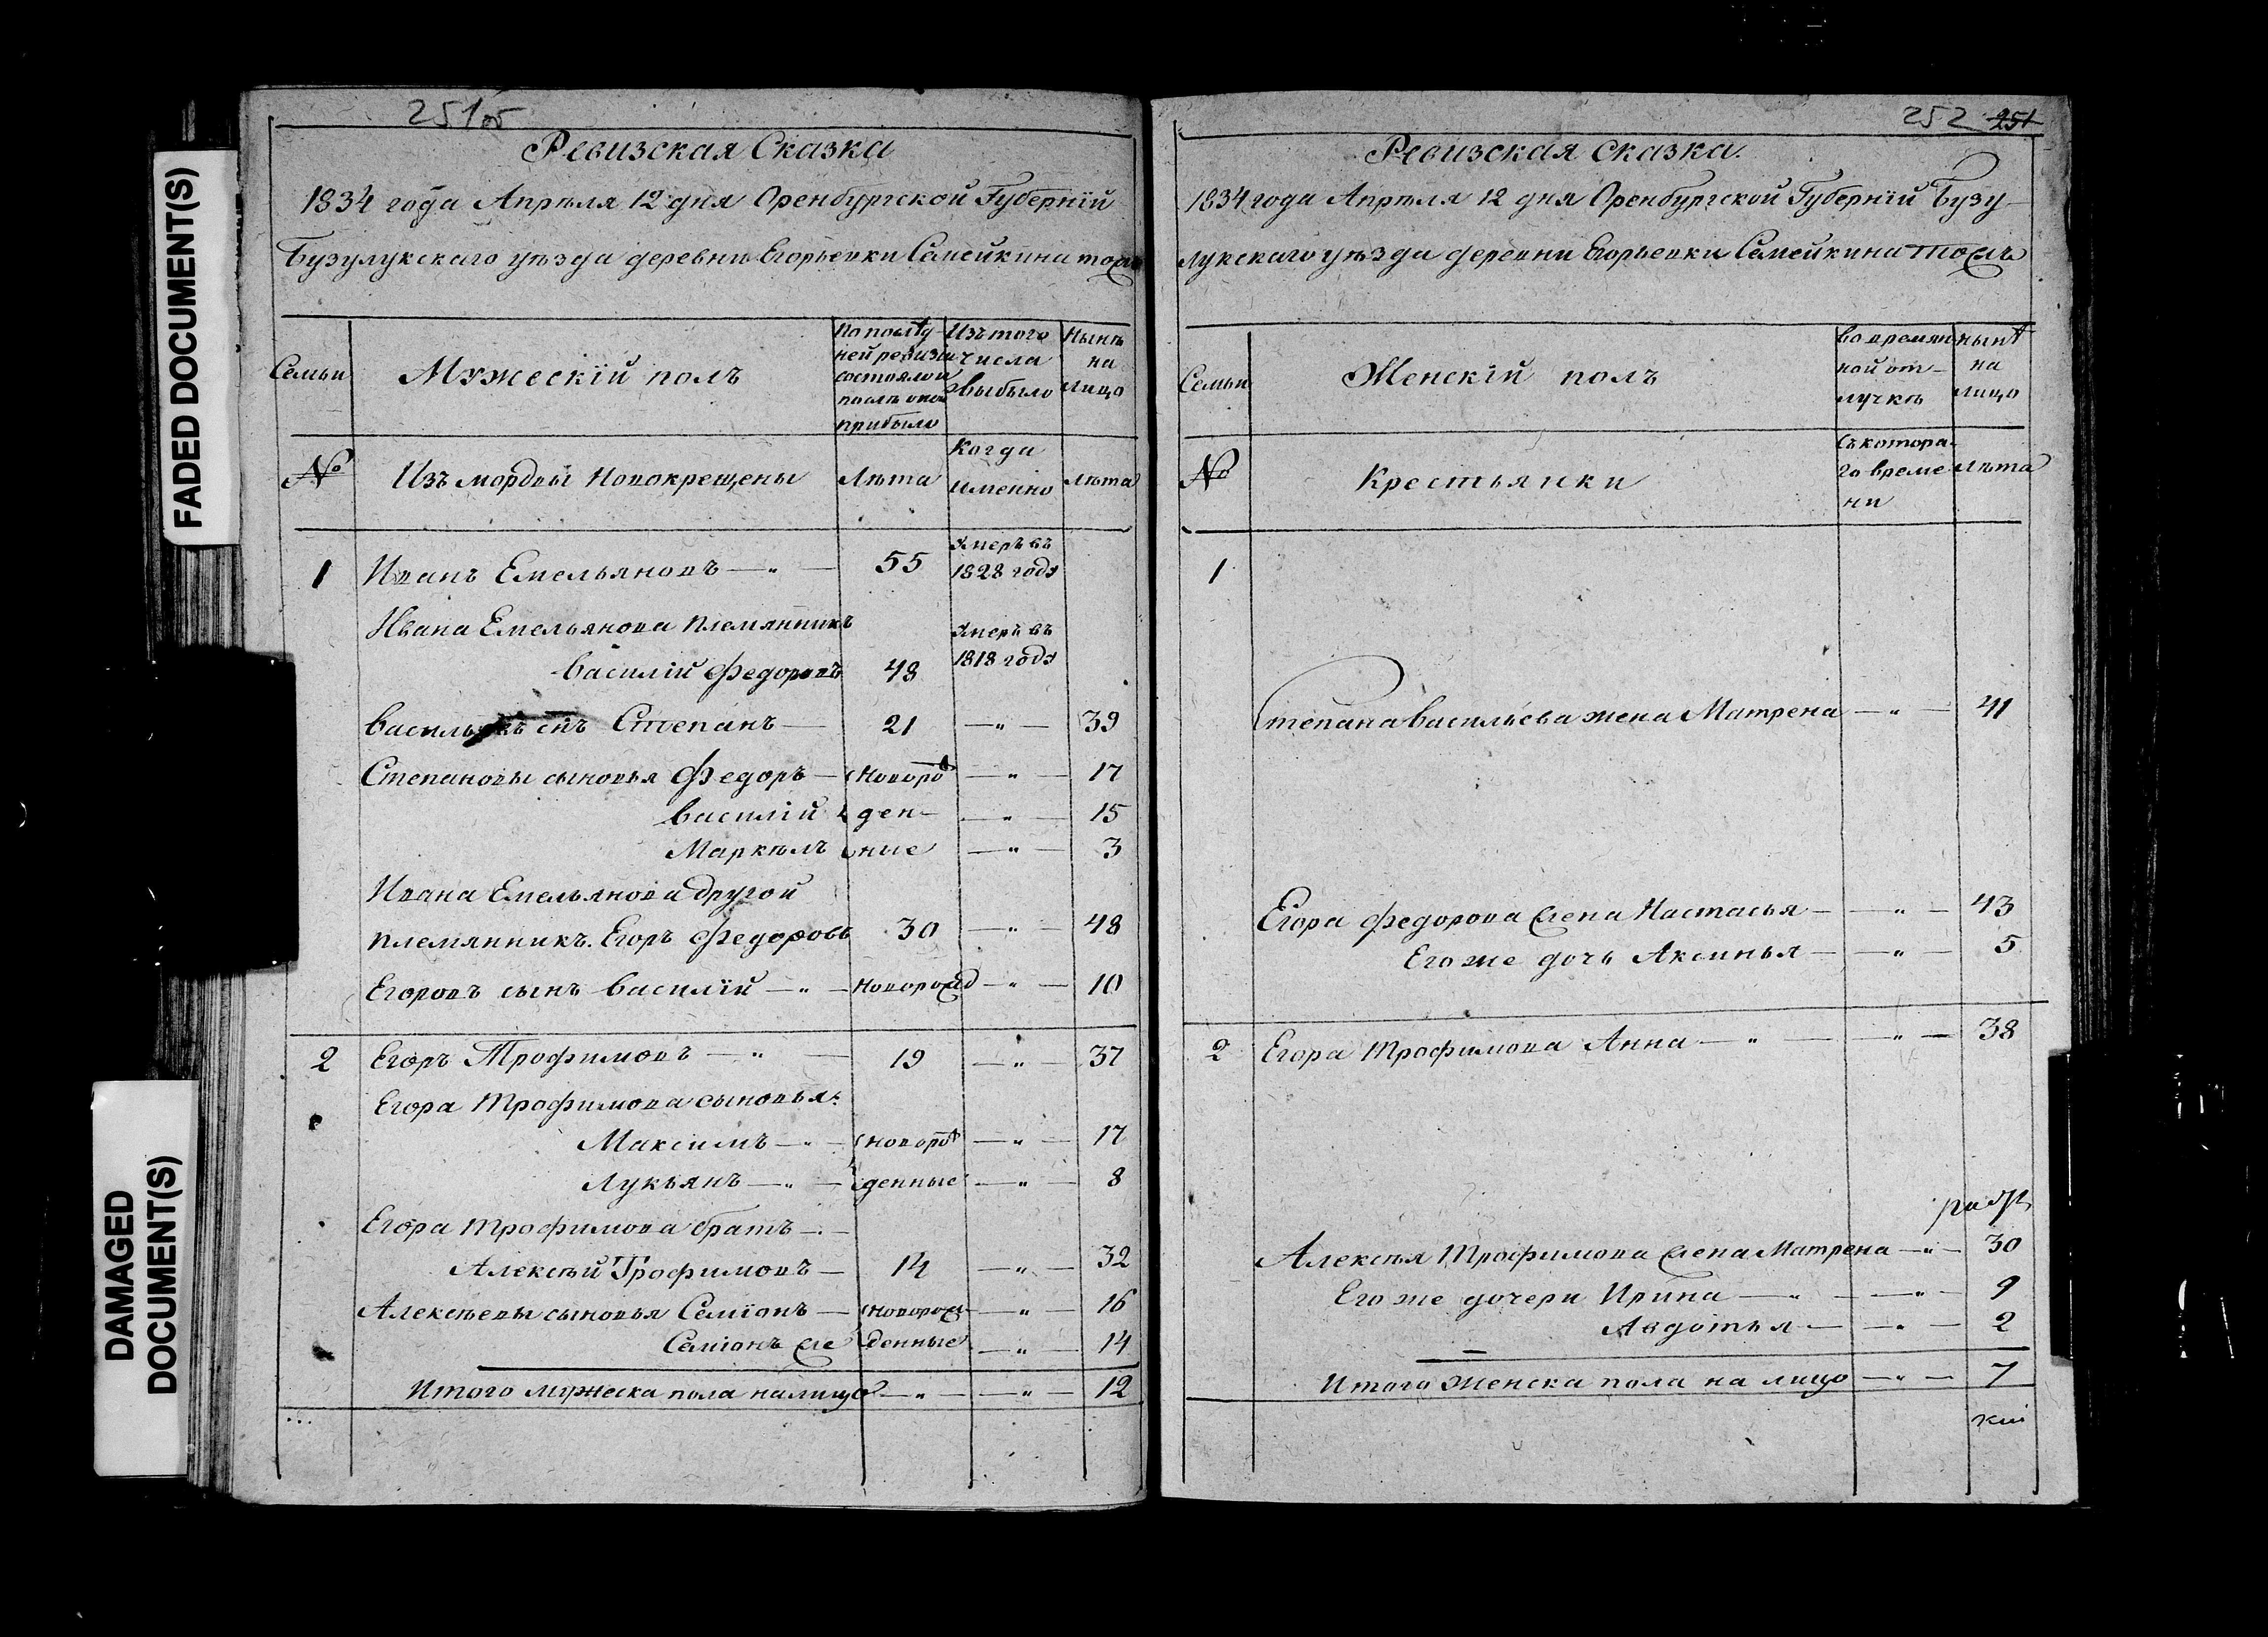 FADED DOCUMENT(S)
DAMAGED
DOCUMENT(S)
251об
Ревизская Сказка
1834 года Апреля 12 дня Оренбургской Губернїй
Бузулукского уѣзда деревни Егорьевки Семейкина тожъ
Семьи
Мужескїй полъ
По послѣд-
ней ревизи
состояло и
послѣ оной
прибыло
Изъ того
числа
выбыло
Нынѣ
на
лицо
№
Изъ мордвы Новокрещены
Лѣта
Когда
именно
лѣта
1 Иванъ Емельяновъ — „ — 55 умеръ въ
1828 году
Ивана Емельянова племянникъ
василїй Федоровъ 48 умеръ въ
1818 году
васильевъ сынъ Степанъ — 21 — „ — 39
Степановы сыновья Федоръ — новорож — „ — 17
василїй ден- — „ — 15
Маркѣлъ ные — „ — 3
Ивана Емельянова другой
племянникъ. Егоръ Федоровъ 30 — „ — 48
Егоровъ сынъ василїй — „ — Новорожд — „ — 10
2 Егоръ Трофимовъ — „ — 19 — „ — 37
Егора Трофимова сыновья:
Максимъ — „ — новорож — „ — 17
Лукьянъ — „ — денные — „ — 8
Егора Трофимова братъ —.—
Алексѣй Трофимовъ — 14 — „ — 32
Алексѣевы сыновья Семїонъ — новорож — „ — 16
Семїонъ же денные — „ — 14
Итого мужеска пола налицо — „ — — „ — 12
252 251
Ревизская Сказка.
1834 года Апреля 12 дня Оренбургской Губернїй Бузу-
лукского уѣзда деревни Егорьевки Семейкина тожъ
Семьи
Женскїй полъ
во времян
ной от-
лучкѣ
нынѣ
на
лицо
№
Крестьянки
съ котора-
го време
ни
лѣта
1
Степана васильева жена Матрена — „ — 41
Егора Федорова жена Настасья — — „ — 43
Его же дочь Аксинья — — „ — 5
2 Егора Трофимова Анна — „ — — „ — 38
Алексѣя Трофимова жена Матрена — „ — 30
Его же дочери Ирина — „ — — „ — 9
Авдотья — — „ — 2
Итого женска пола на лицо — „ — 7